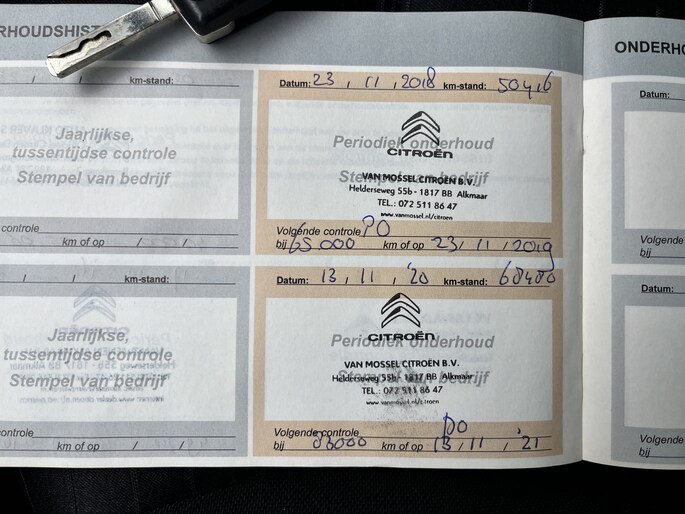 RHOUDSHIST
/ / km-stand:
Jaarlijkse,
tussentijdse controle
Stempel van bedrijf
controle
km of op / /
/ / km-stand:
Jaarlijkse,
tussentijdse controle
Stempel van bedrijf
controle
km of op / /
Datum: 23 / 11 / 2018 km-stand:
Periodiek onderhoud
CITROËN
Stempel van bedrijf
VAN MOSSEL CITROËN B.V.
Helderseweg 55b - 1817 BB Alkmaar
TEL.: 072 511 86 47
www.vanmossel.nl/citroen
Volgende controle PO
bij 65000 km of op 23 / 11 / 2019
Datum: 13 / 11 / '20 km-stand: 68480
CITROËN
Periodiek onderhoud
VAN MOSSEL CITROËN B.V.
Stempel van bedrijf
Helderseweg 55b - 1817 BB Alkmaar
TEL.: 072 511 86 47
www.vanmossel.nl/citroen
Volgende controle PO
bij 83000 km of op 13 / 11 / '21
ONDERHO
Datum:
Volgende
bij
Datum:
Volgende
bij